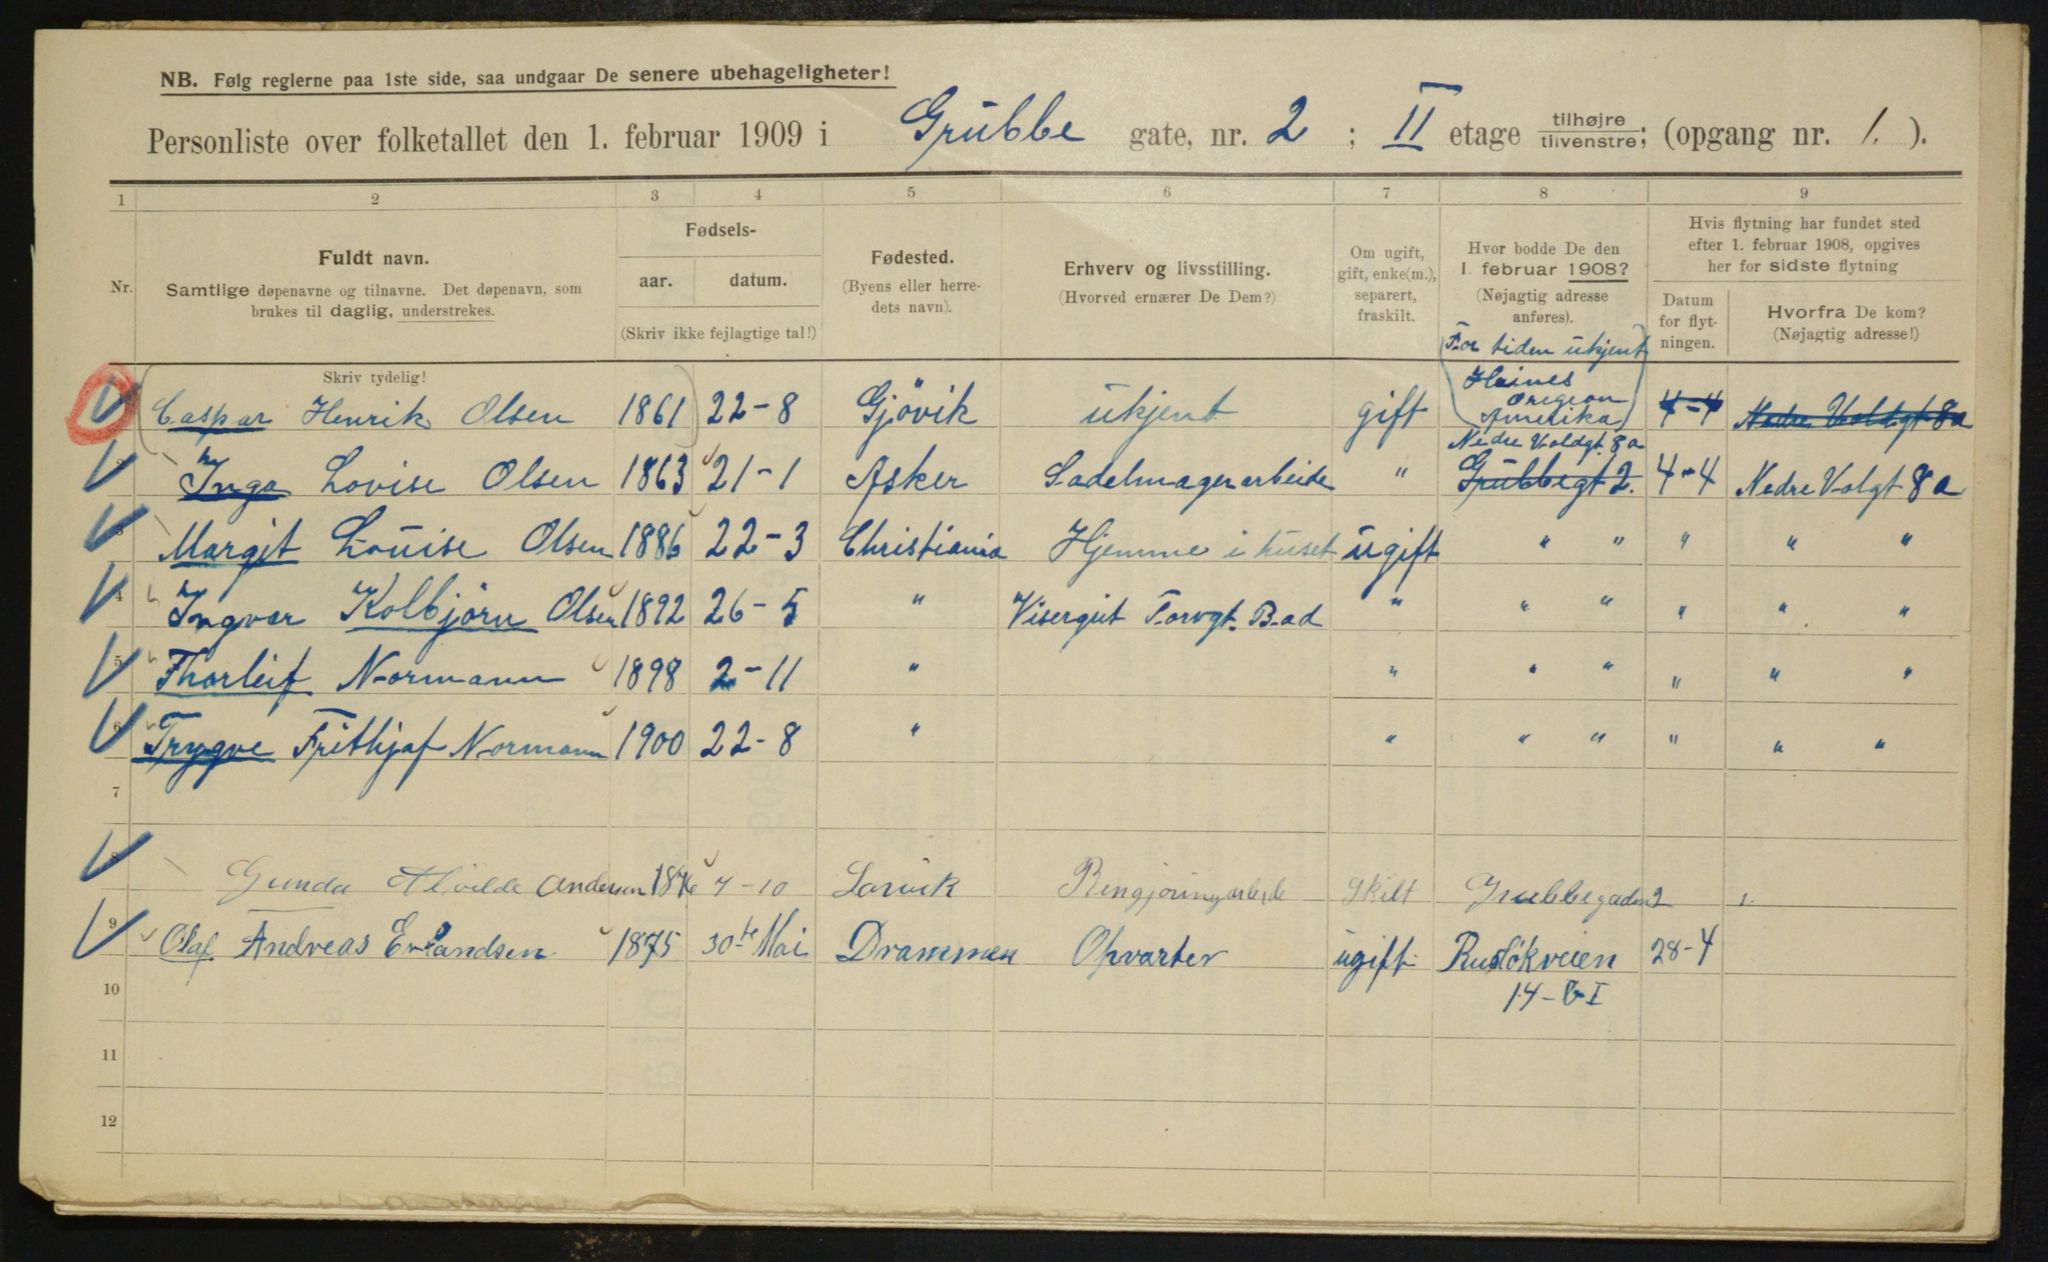 NB. Følg reglerne paa 1ste side, saa undgaar De senere ubehageligheter!
Personliste over folketallet den 1. februar 1909 i Grubbe gate, nr. 2 ; II etage tilhøjre tilvenstre; (opgang nr. 1. ).
1 2 3 4 5 6 7 8 9
Nr. Fuldt navn. Samtlige døpenavne og tilnavne. Det døpenavn, som brukes til daglig, understrekes.
Skriv tydelig!
Fødsels- aar. datum. (Skriv ikke fejlagtige tal!)
Fødested. (Byens eller herredets navn).
Erhverv og livsstilling. (Hvorved ernærer De Dem?)
Om ugift, gift, enke(m.), separert, fraskilt.
Hvor bodde De den 1. februar 1908? (Nøjagtig adresse anføres).
Hvis flytning har fundet sted efter 1. februar 1908, opgives her for sidste flytning
Datum for flytningen.
Hvorfra De kom? (Nøjagtig adresse!)
(Caspar Henrik Olsen 1861) 22-8 Gjövik ukjent gift (For tiden ukjent Haines Oregion Amerika) 4-4 Nedre Voldgt 8a
2 Inga Lovise Olsen 1863 21-1 Asker Sadelmagerarbeide " Nedre Voldgt. 8a Grubbegt 2. 4-4 Nedre Volgt 8a
3 Margit Louise Olsen 1886 22-3 Christiania Hjemme i huset ugift " " " " "
4 Ingvar Kolbjörn Olsen 1892 26-5 " Visergut Torvgt. Bad " " " " " "
5 Thorleif Normann 1898 2-11 " " " " " " "
6 Trygve Frithjof Normann 1900 22-8 " " " " " " "
7
8 Gunda Alvilde Andersen 1876 7-10 Larvik Rengjøringarbeide Skilt Grubbegaden 2
9 Olaf Andreas Erlandsen 1875 30te Mai Drammen Opvarter ugift Rusløkveien 28-4
10 14-
11
12